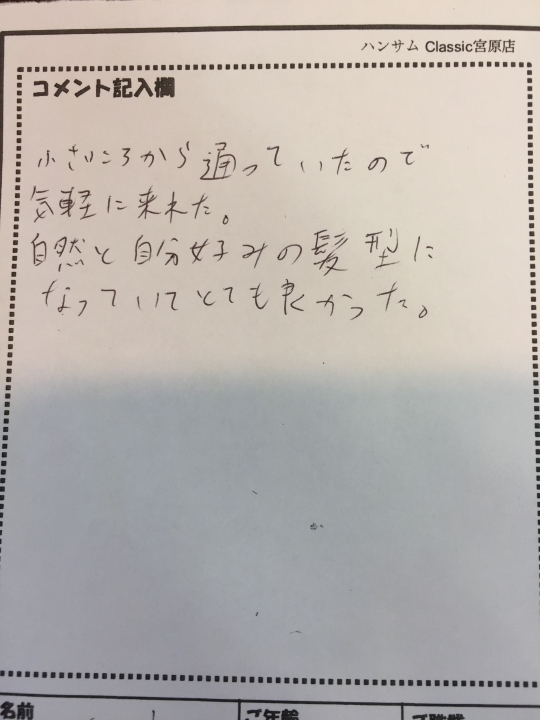 ハンサム Classic宮原店
コメント記入欄
小さいころから通っていたので
気軽に来れた。
自然と自分好みの髪型に
なっていてとても良かった。
名前
ご年齢
ご職業